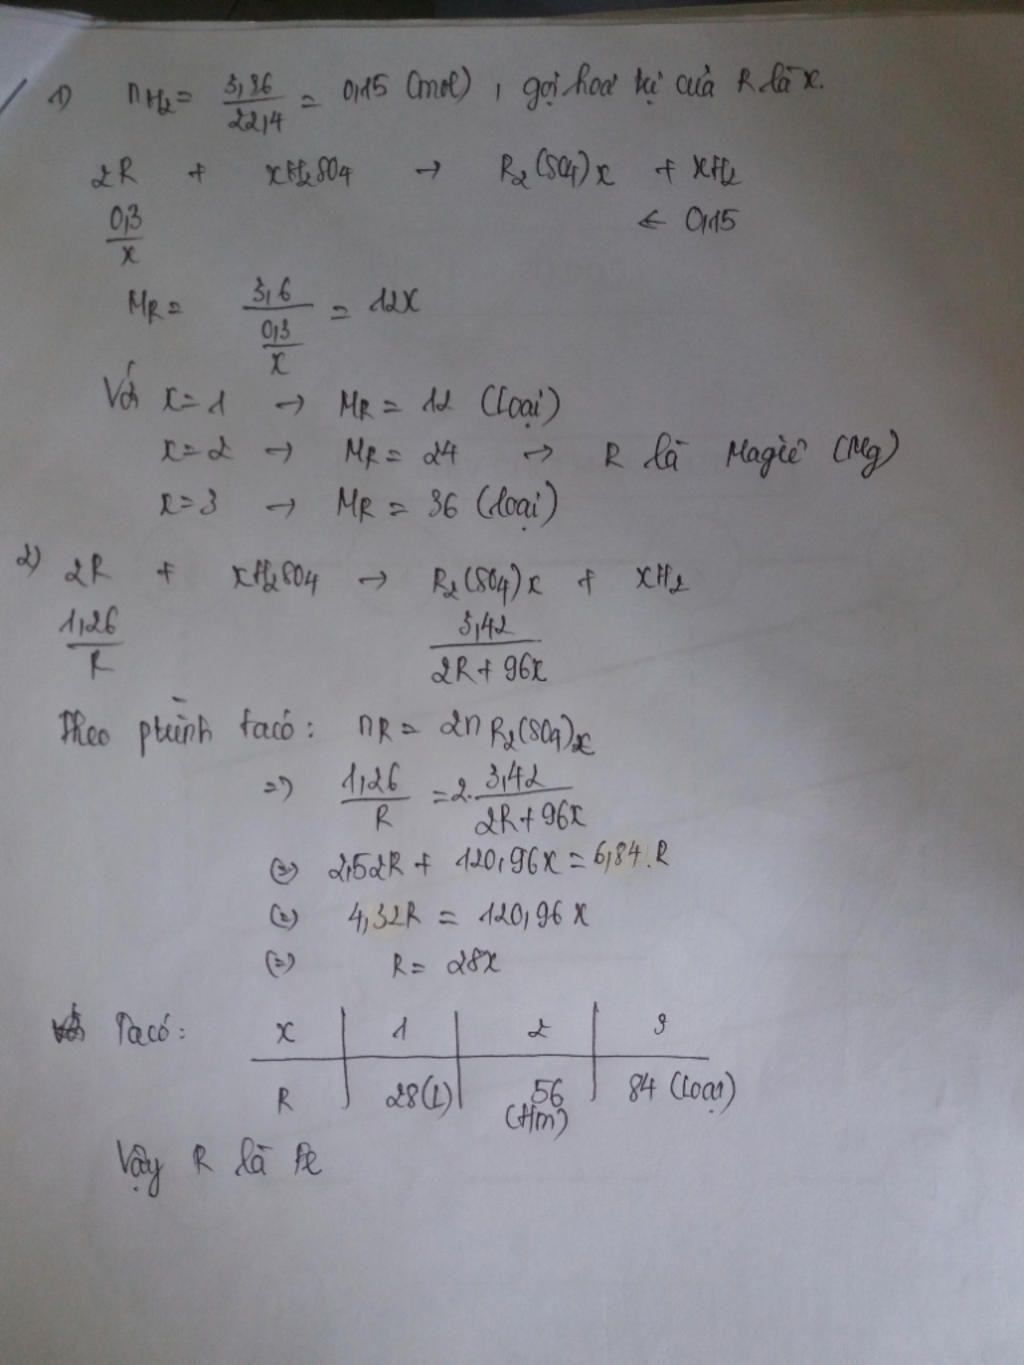 1) nH2 = 3,36/22,4 = 0,15 (mol) , gọi hoá trị của R là x.
2R + xH2SO4 → R2(SO4)x + xH2
0,3/x ← 0,15
MR = 3,6/(0,3/x) = 12x
Với x=1 → MR = 12 (Loại)
x=2 → MR = 24 → R là Magiê (Mg)
x=3 → MR = 36 (loại)
2) 2R + xH2SO4 → R2(SO4)x + xH2
1,26/R 3,42/(2R+96x)
Theo ptrình ta có: nR = 2nR2(SO4)x
=> 1,26/R = 2. 3,42/(2R+96x)
(=) 2,52R + 120,96x = 6,84.R
(=) 4,32R = 120,96x
(=) R = 28x
Ta có: x | 1 | 2 | 3
R | 28(L) | 56 (Hm) | 84 (Loại)
Vậy R là Fe